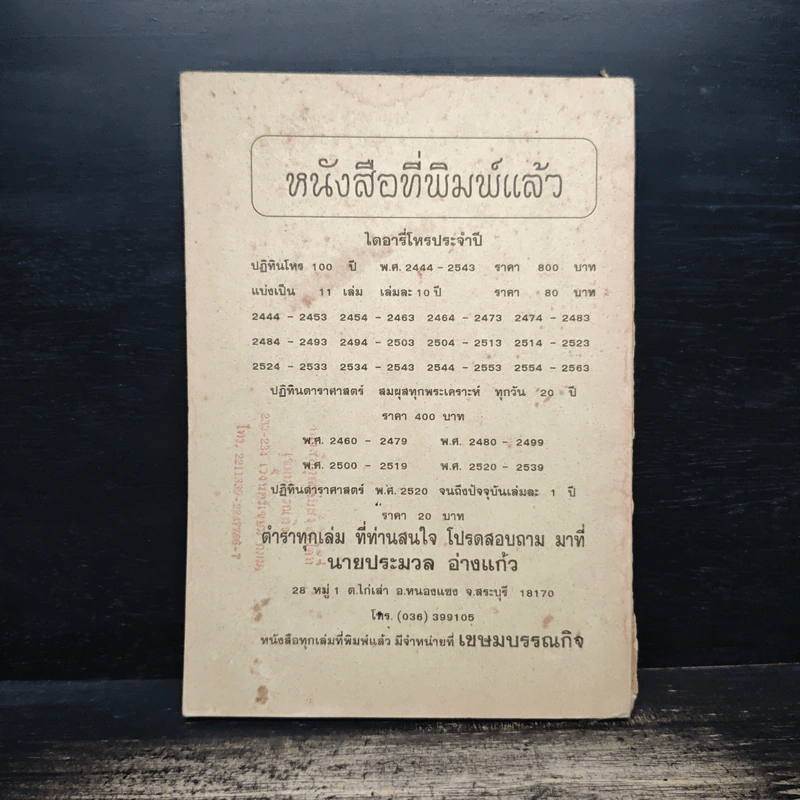 หนังสือที่พิมพ์แล้ว
ไดอารี่โหรประจำปี
ปฏิทินโหร 100 ปี พ.ศ. 2444 – 2543 ราคา 800 บาท
แบ่งเป็น 11 เล่ม เล่มละ 10 ปี ราคา 80 บาท
2444 – 2453 2454 – 2463 2464 – 2473 2474 – 2483
2484 – 2493 2494 – 2503 2504 – 2513 2514 – 2523
2524 – 2533 2534 – 2543 2544 – 2553 2554 – 2563
ปฏิทินดาราศาสตร์ สมผุสทุกพระเคราะห์ ทุกวัน 20 ปี
ราคา 400 บาท
พ.ศ. 2460 – 2479 พ.ศ. 2480 – 2499
พ.ศ. 2500 – 2519 พ.ศ. 2520 – 2539
ปฏิทินดาราศาสตร์ พ.ศ. 2520 จนถึงปัจจุบันเล่มละ 1 ปี
ราคา 20 บาท
ตำราทุกเล่ม ที่ท่านสนใจ โปรดสอบถาม มาที่
นายประมวล อ่างแก้ว
28 หมู่ 1 ต.ไก่เส่า อ.หนองแซง จ.สระบุรี 18170
โทร. (036) 399105
หนังสือทุกเล่มที่พิมพ์แล้ว มีจำหน่ายที่ เขษมบรรณกิจ